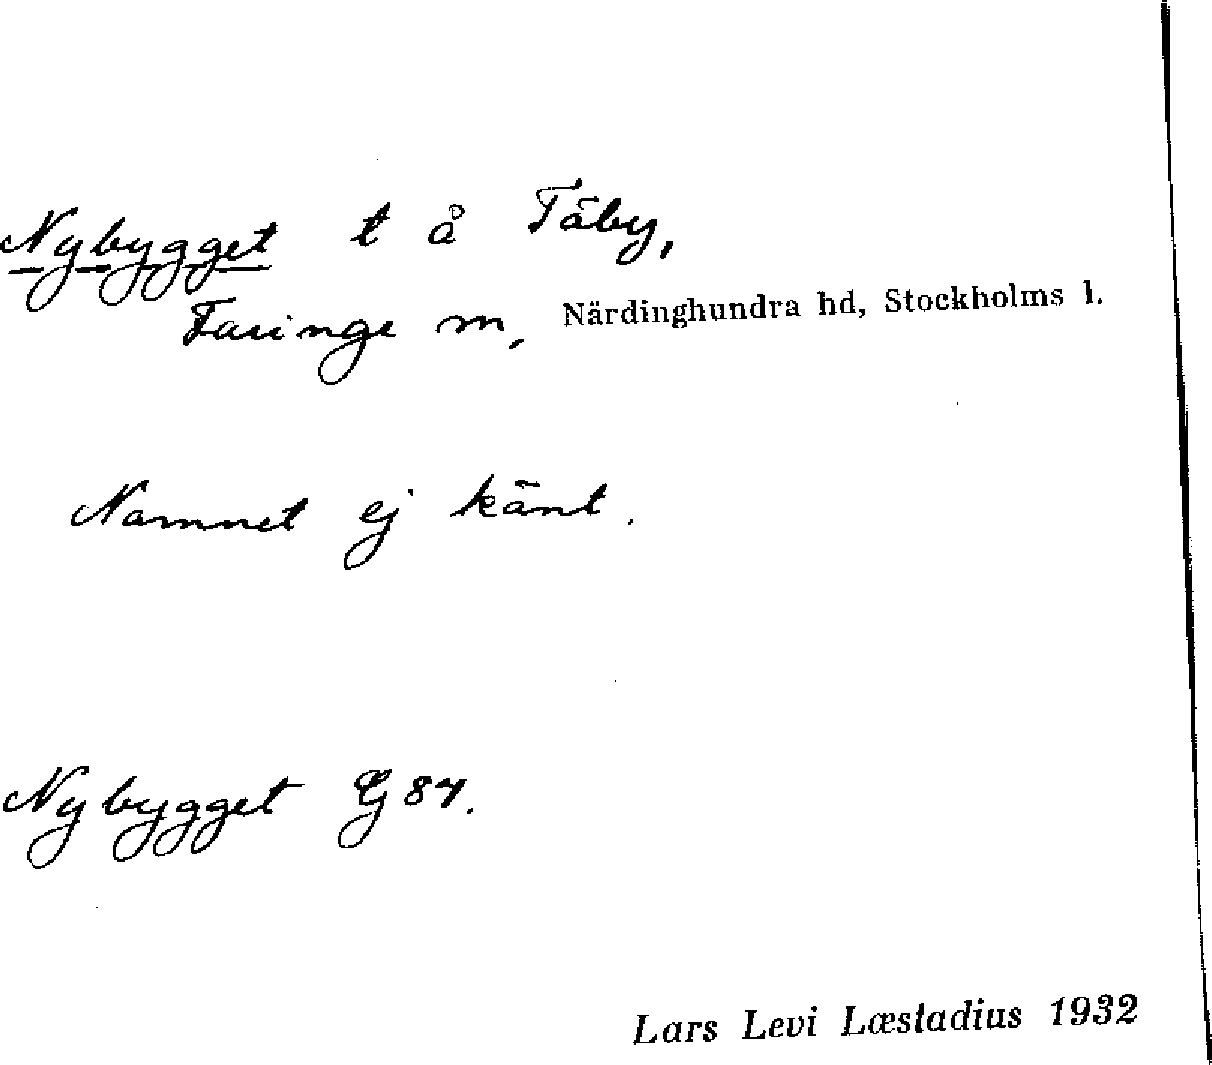 Nybygget t å Täby,
Faringe m, Närdinghundra hd, Stockholms l.
Namnet ej känt.
Nybygget G 84.
Lars Levi Læstadius 1932